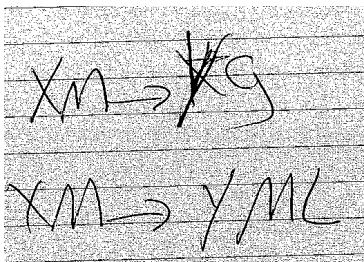 XM → Yg
XM → YML